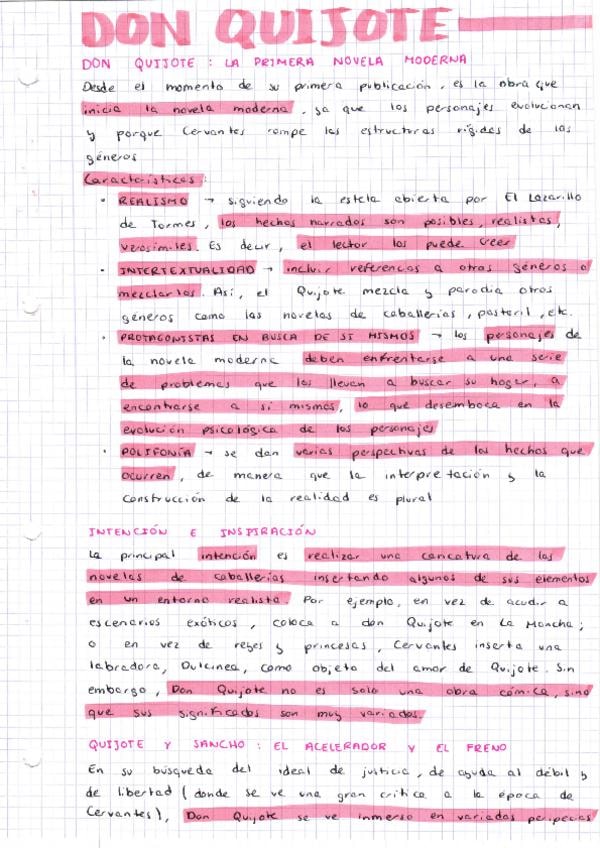 DON QUIJOTE
DON QUIJOTE : LA PRIMERA NOVELA MODERNA
Desde el momento de su primera publicación, es la obra que
inicia la novela moderna, ya que los personajes evolucionan
y porque Cervantes rompe las estructuras rígidas de los
géneros
Características:
· REALISMO → siguiendo la estela abierta por El Lazarillo
de Tormes, los hechos narrados son posibles, realistas,
verosímiles. Es decir, el lector los puede creer
· INTERTEXTUALIDAD → incluir referencias a otros géneros o
mezclarlos. Así, el Quijote mezcla y parodia otros
géneros como las novelas de caballerías, pastoril, etc.
· PROTAGONISTAS EN BUSCA DE SI MISMOS → los personajes de
la novela moderna deben enfrentarse a una serie
de problemas que los llevan a buscar su hogar, a
encontrarse a sí mismos, lo que desemboca en la
evolución psicológica de los personajes
· POLIFONÍA → se dan varias perspectivas de los hechos que
ocurren, de manera que la interpretación y la
construcción de la realidad es plural
INTENCIÓN E INSPIRACIÓN
La principal intención es realizar una caricatura de las
novelas de caballerías insertando algunos de sus elementos
en un entorno realista. Por ejemplo, en vez de acudir a
escenarios exóticos, coloca a don Quijote en La Mancha;
o en vez de reyes y princesas, Cervantes inserta una
labradora, Dulcinea, como objeto del amor de Quijote. Sin
embargo, Don Quijote no es solo una obra cómica, sino
que sus significados son muy variados.
QUIJOTE Y SANCHO : EL ACELERADOR Y EL FRENO
En su búsqueda del ideal de justicia, de ayuda al débil y
de libertad (donde se ve una gran crítica a la época de
Cervantes), Don Quijote se ve inmerso en variadas peripecias